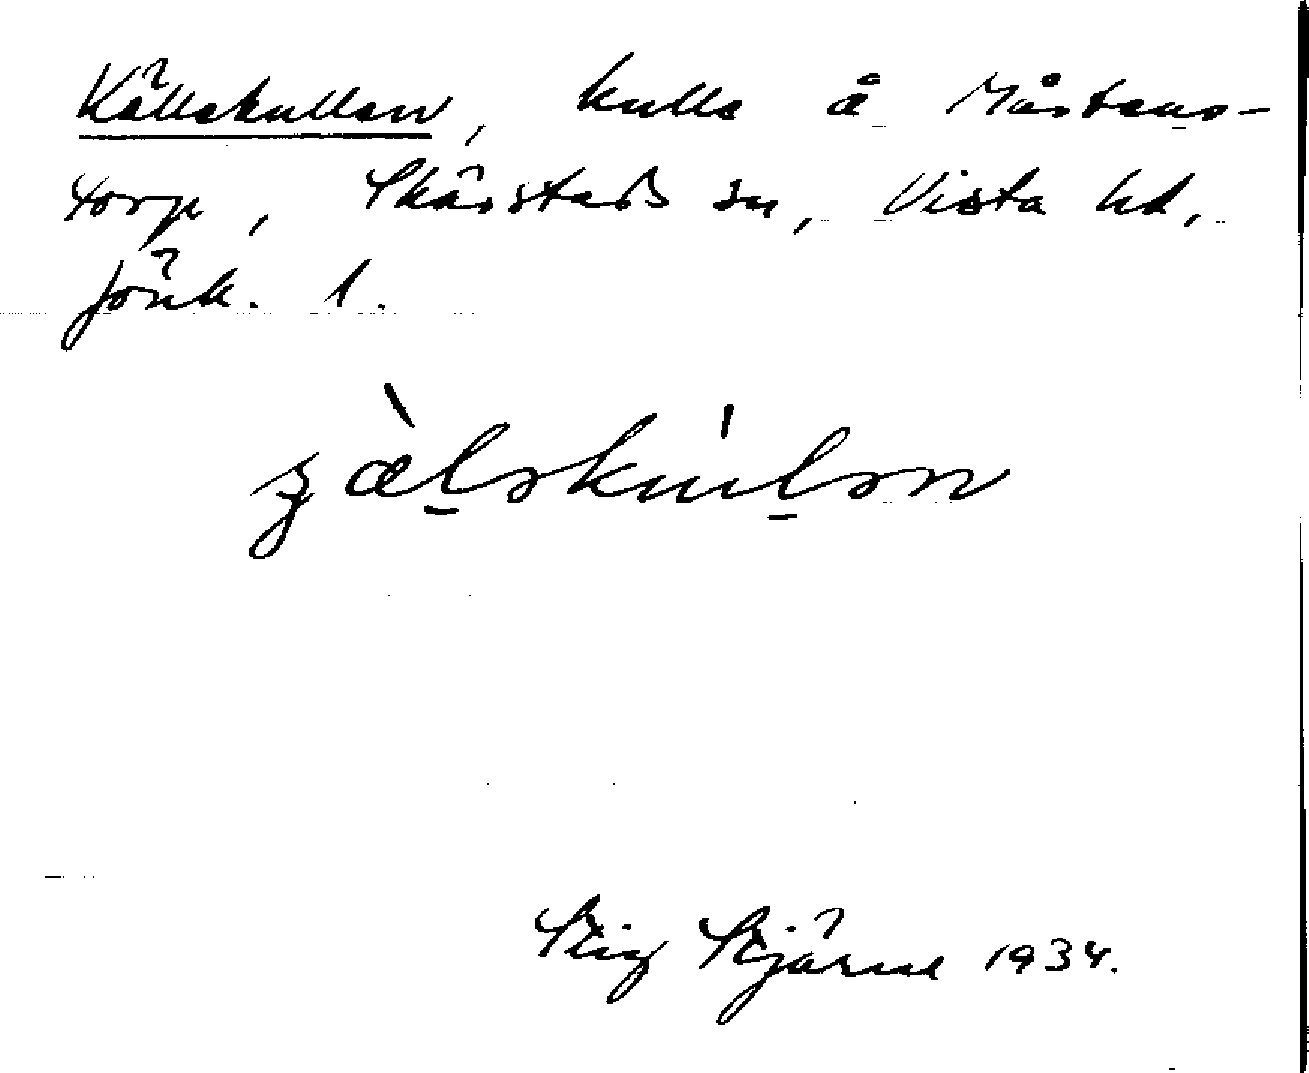 Källekullen, kulle å Mårtens-
torp, Skärstads sn, Vista hd,
Jönk. l.
Stig Stjärne 1934.